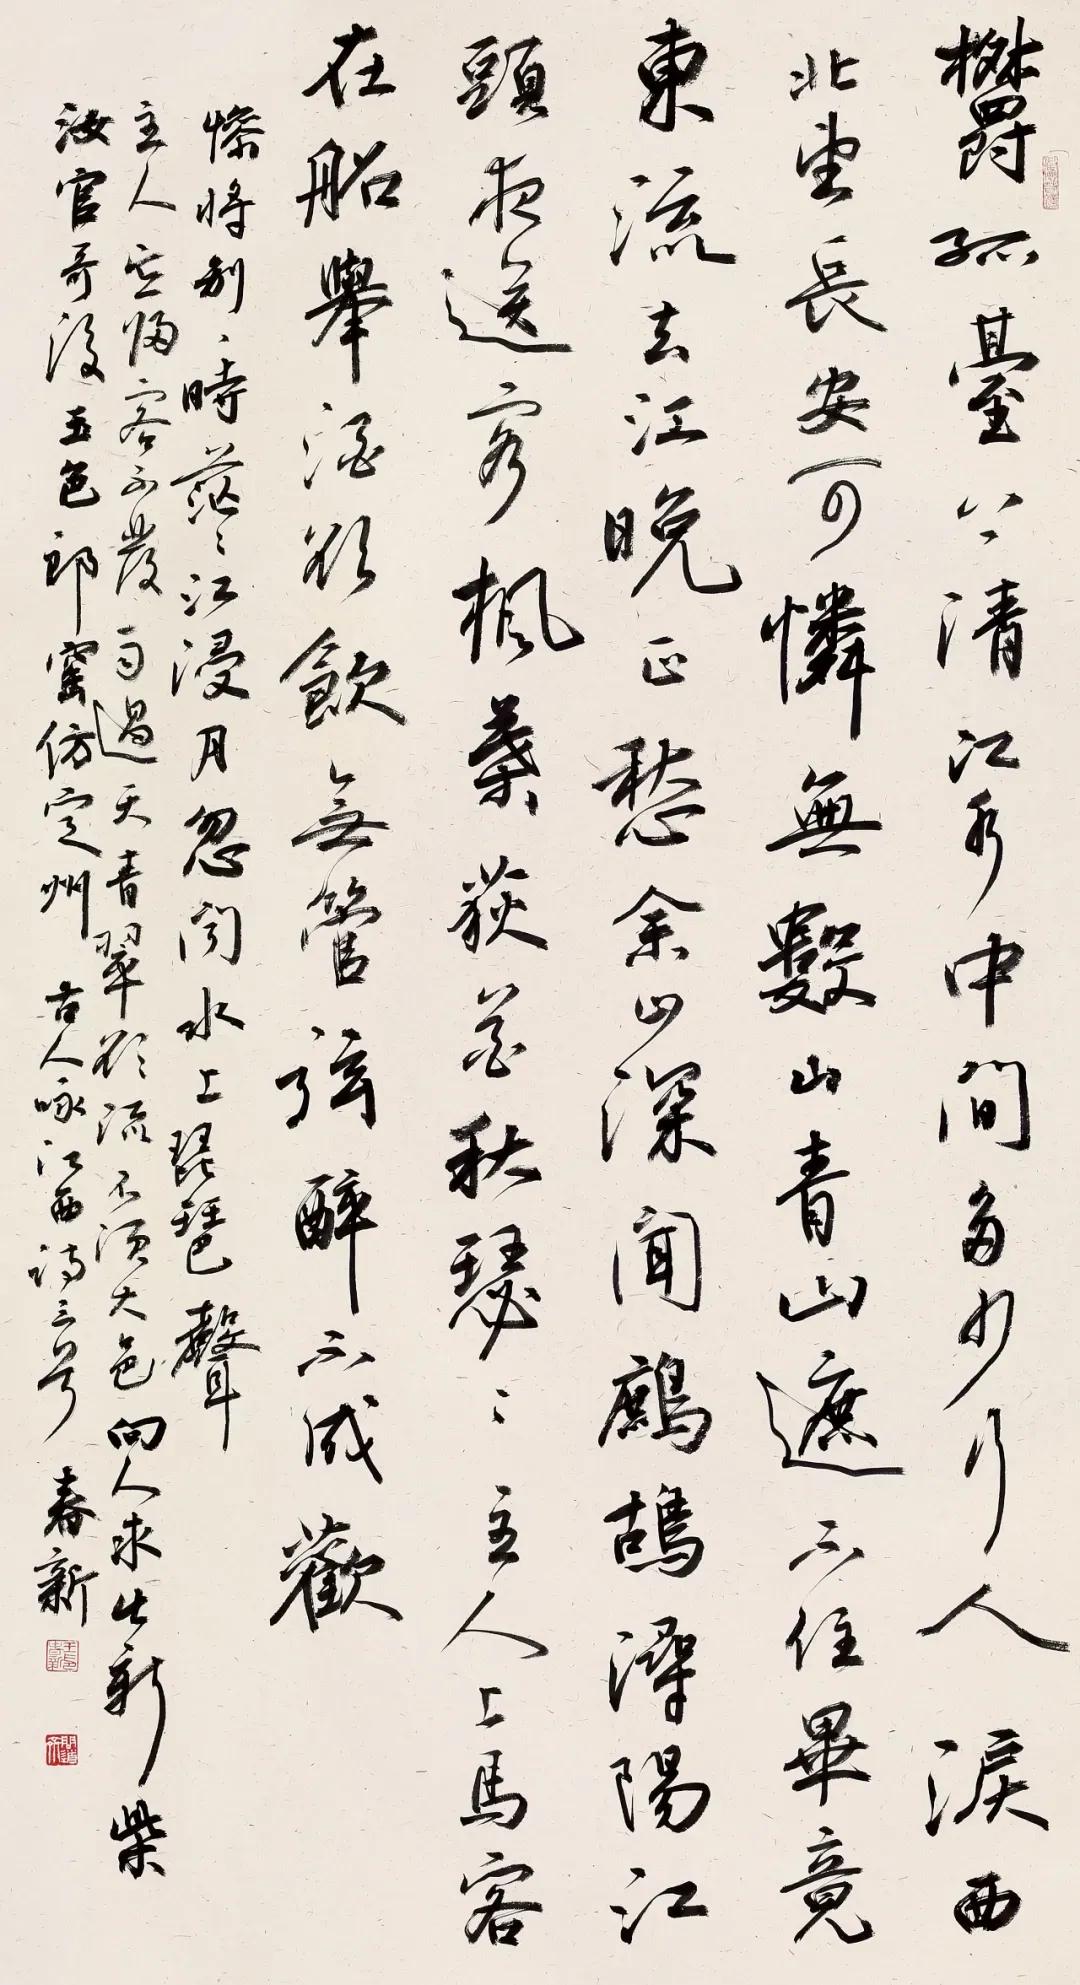 欝孤臺下清江水中間多少行人淚西
北望長安可憐無數山青山遮不住畢竟
東流去江晚正愁余山深聞鷓鴣潯陽江
頭夜送客枫葉荻花秋瑟〻主人上馬客
在船舉酒欲飲無管弦醉不成歡
惨將别〻時茫〻江浸月忽闻水上琵琶聲
主人忘归客不發 雨過天青翠欲流不須大色向人求出新柴
汝官哥後五色郎窑仿定州 古人咏江西詩三首 春新